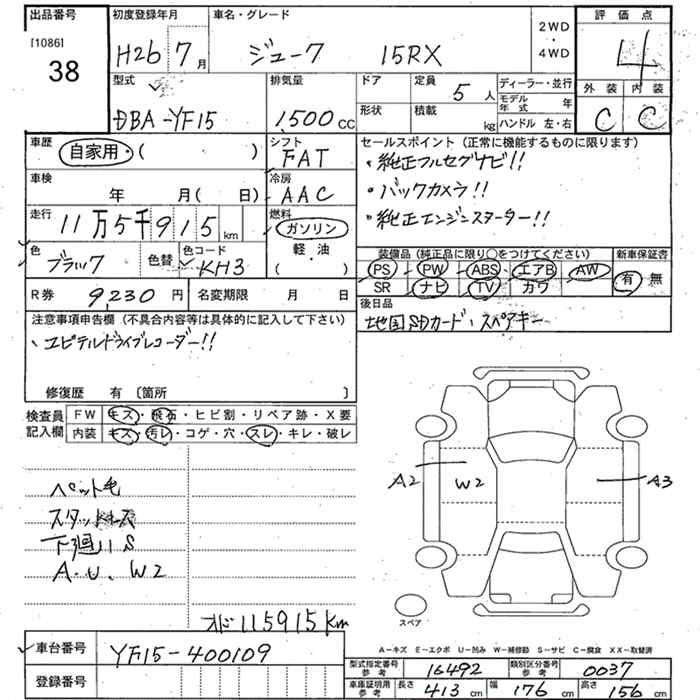 出品番号 初度登録年月 車名・グレード 2WD・4WD 評価点
[1086]
38 H26 7月 ジューク 15RX 4
型式 排気量 ドア 定員 5人 ディーラー・並行 外装 内装
DBA-YF15 1,500cc 形状 積載 kg モデル年式 年 C C
ハンドル 左・右
車歴 自家用・( ) シフト FAT セールスポイント (正常に機能するものに限ります)
・純正フルセグナビ!!
車検 年 月 ( 日) 冷房 AAC
・バックカメラ!!
走行 11万5千915km 燃料 ガソリン
・純正エンジンスターター!!
軽・油
( )
色 ブラック 色替 色コード KH3
装備品 (純正品に限り○をつけてください) 新車保証書
PS PW ABS エアB AW 有 無
SR ナビ TV カワ
R券 9,230円 名変期限 月 日
後日品
地図SDカード・スペアキー
注意事項申告欄 (不具合内容等は具体的に記入して下さい)
・ユピテルドライブレコーダー!!
修復歴 有 〔箇所 〕
検査員記入欄 FW キズ・飛石・ヒビ割・リペア跡・X要
内装 キズ・汚レ・コゲ・穴・スレ・キレ・破レ
A2 W2 A3
ペット毛
下廻りS
A.U.W2
スペア
オド115915Km
A-キズ E-エクボ U-凹み W-補修跡 S-サビ C-腐食 XX-取替済
車台番号 YF15-400109
登録番号
型式指定番号 参考 16492 類別区分番号 参考 0037
車庫証明用 参考 長さ 413cm 幅 176cm 高さ 156cm